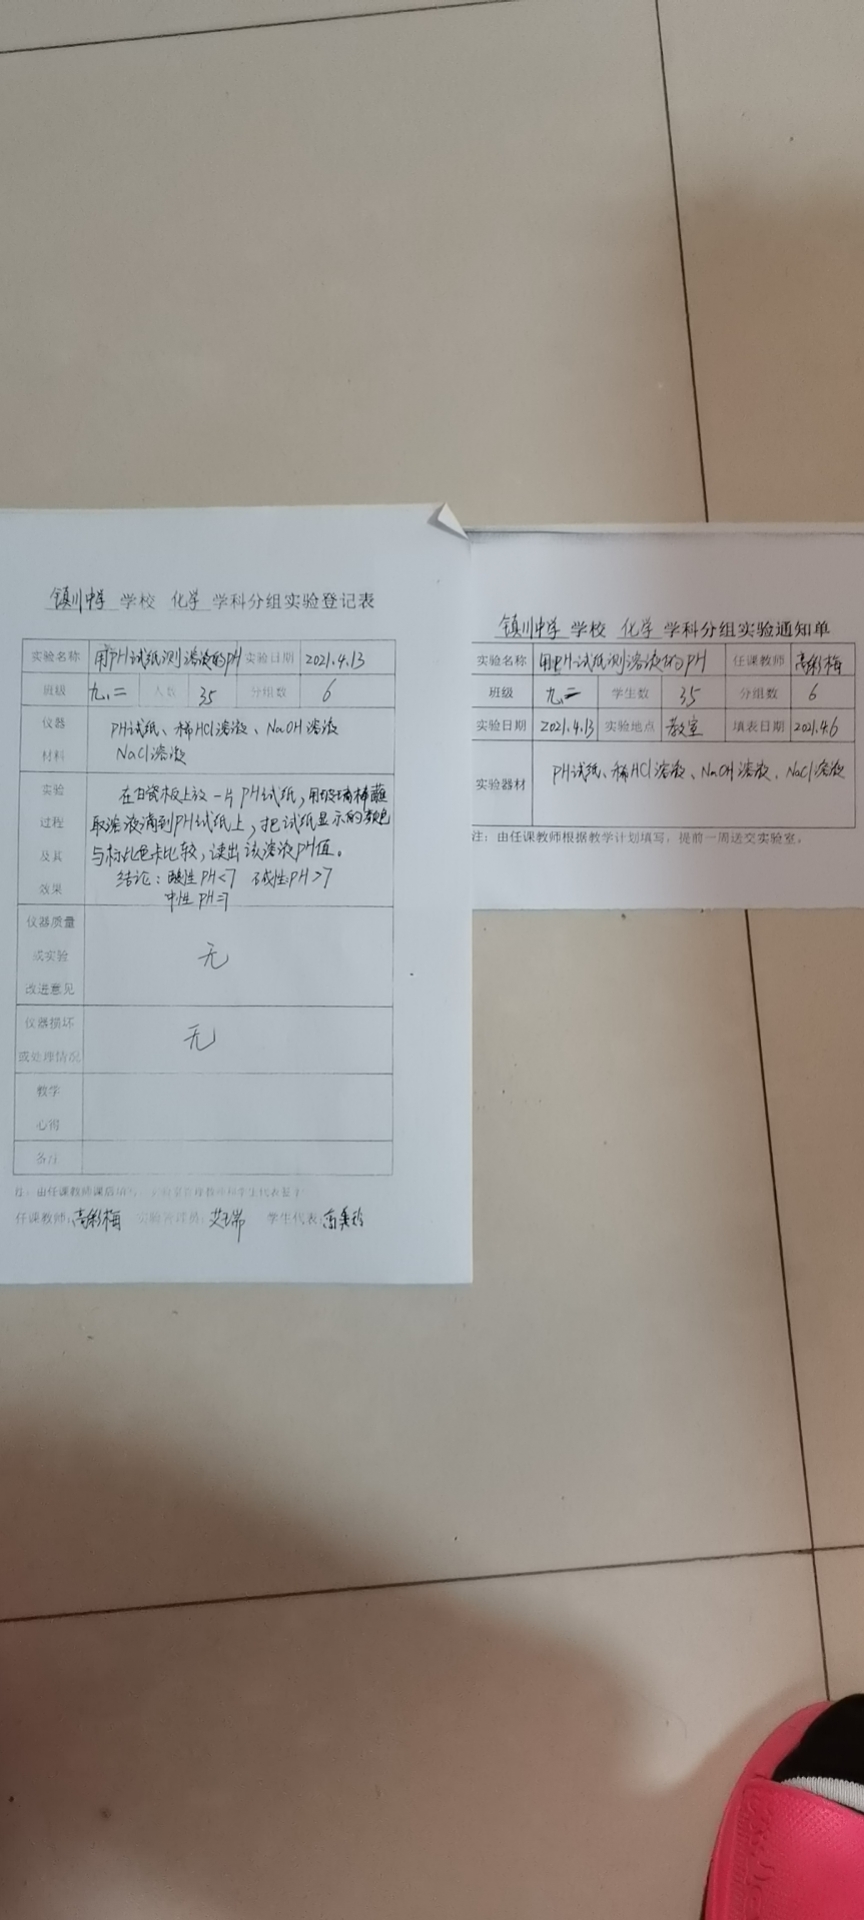 镇川中学 学校 化学 学科分组实验登记表
实验名称 用PH试纸测溶液的PH 实验日期 2021.4.13
班级 九.二 人数 35 分组数 6
仪器
材料
PH试纸、稀HCl溶液、NaOH溶液
NaCl溶液
实验
过程
及其
效果
在白瓷板上放一片PH试纸,用玻璃棒蘸
取溶液滴到PH试纸上,把试纸显示的颜色
与标比色卡比较,读出该溶液PH值。
结论:酸性PH<7 碱性:PH>7
中性PH=7
仪器质量
或实验
改进意见
无
仪器损坏
或处理情况
无
教学
心得
备注
注:由任课教师课后填写,
任课教师:高彩梅 实验管理员: 学生代表:
镇川中学 学校 化学 学科分组实验通知单
实验名称 用PH试纸测溶液的PH 任课教师 高彩梅
班级 九.二 学生数 35 分组数 6
实验日期 2021.4.13 实验地点 教室 填表日期 2021.4.6
实验器材 PH试纸、稀HCl溶液、NaOH溶液、NaCl溶液
注:由任课教师根据教学计划填写,提前一周送交实验室。